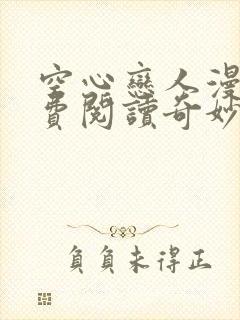 空心戀人漫
費閱讀奇妙
負負未得正